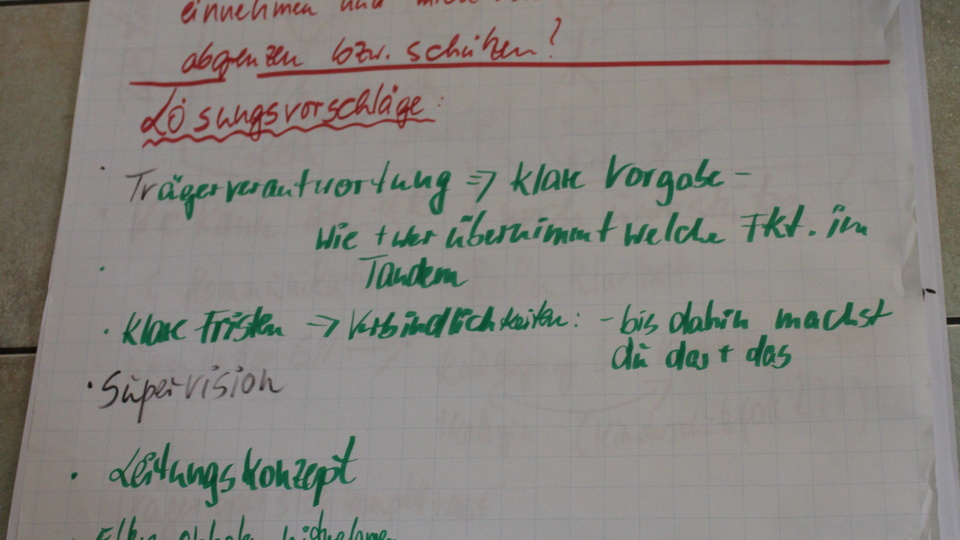 einnehmen und
abgrenzen bzw. schützen?
Lösungsvorschläge:
Trägerverantwortung => klare Vorgabe -
wie + wer übernimmt welche Fkt. im
Tandem
· klare Fristen => Verbindlichkeiten: - bis dahin machst
du das + das
· Supervision
· Leitungskonzept